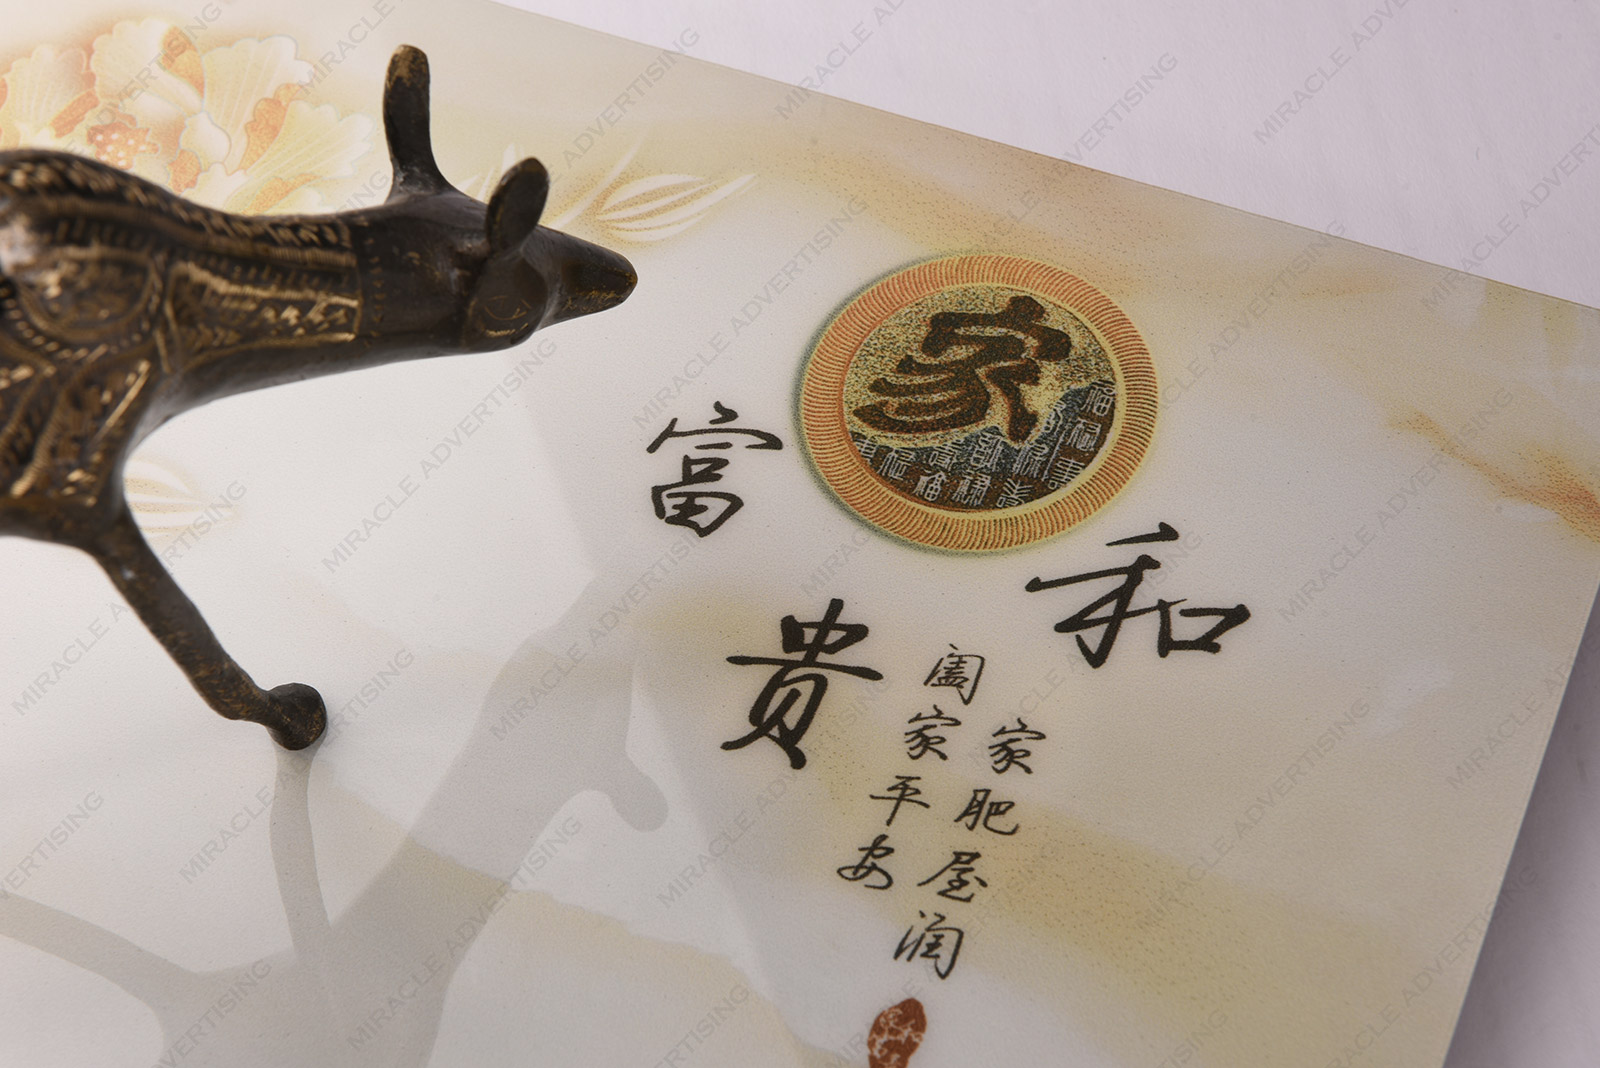 家
和
富
贵
家肥屋润
阖家平安
MIRACLE ADVERTISING